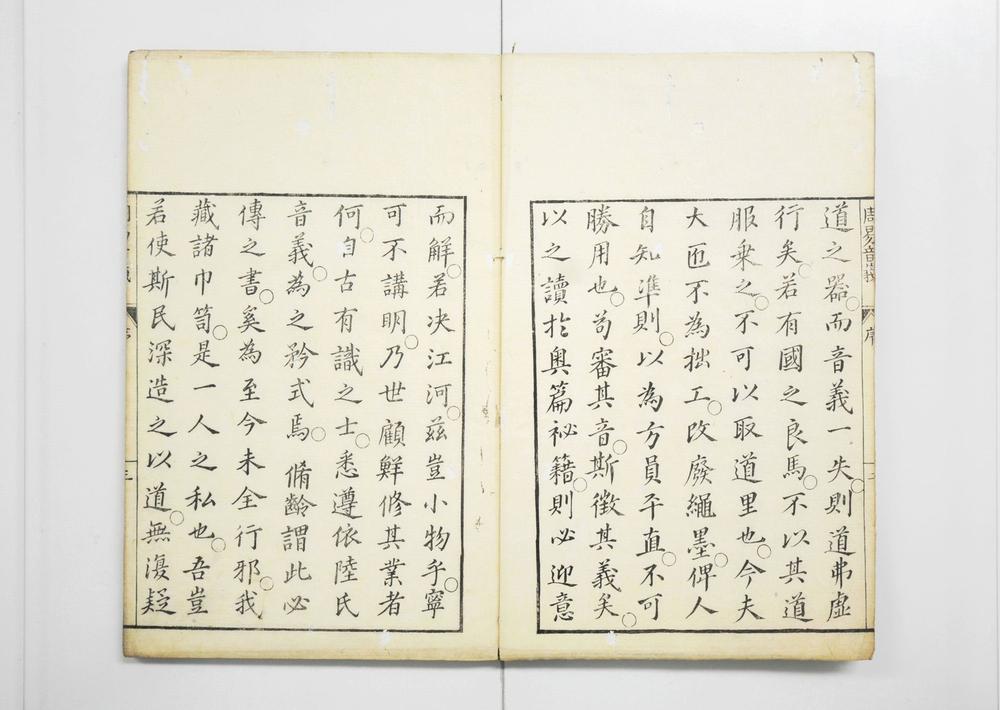 周易音義
序
道之器○而音義一失○則道弗虛
行矣○若有國之良馬○不以其道
服乗之○不可以取道里也○今夫
大匠不為拙工○改廢繩墨○俾人
自知準則○以為方員平直○不可
勝用也○苟審其音○斯徵其義矣○
以之讀於奥篇祕籍○則必迎意
而解○若决江河○兹豈小物乎○寧
可不講明○乃世顧鮮修其業者
何○自古有識之士○悉遵依陸氏
音義○為之矜式焉○脩齡謂此必
傳之書○奚為至今未全行邪○我
藏諸巾笥○是一人之私也○吾豈
若使斯民深造之以道○無復疑